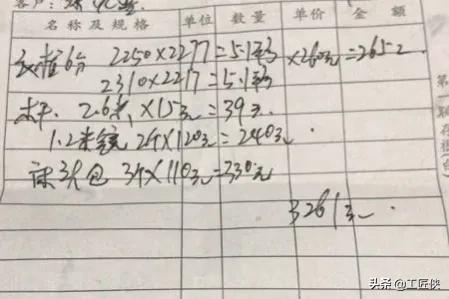 客户:
名称及规格 单位 数量 单价 金额
衣柜6分 2250×2277=5.1 ×260元=2652.
2310×2217=5.1
2.6米×15元=39元
1.2米 2个×120元=240元
床头包 3个×110元=330元
3261元.
第一联存根(白)
头条 @工匠侠